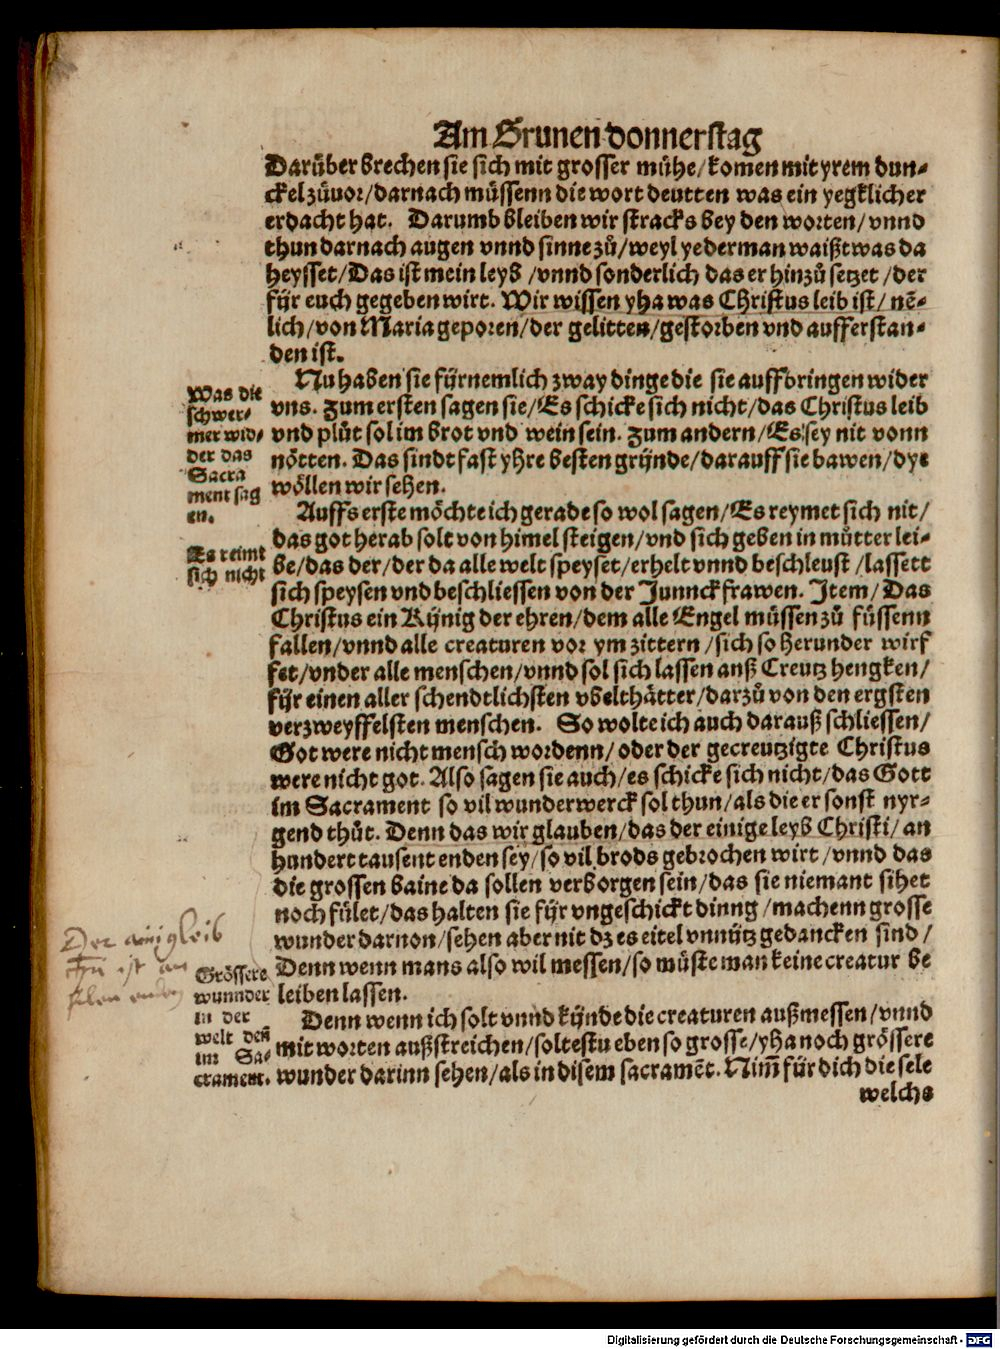 Am Grunen donnerstag
Darüber brechen sie sich mit grosser mühe/komen mit yrem dun-
ckel zůuor/darnach müssenn die wort deutten was ein yegklicher
erdacht hat. Darumb bleiben wir stracks bey den worten/vnnd
thun darnach augen vnnd sinne zů/weyl yederman waißt was da
heysset/Das ist mein leyb/vnnd sonderlich das er hinzů setzet/der
für euch gegeben wirt. Wir wissen yha was Christus leib ist/nē-
lich/von Maria geporen/der gelitten/gestorben vnd aufferstan-
den ist.
Nu haben sie fürnemlich zway dinge die sie auffbringen wider
vns. Zum ersten sagen sie/Es schicke sich nicht/das Christus leib
vnd plůt sol im brot vnd wein sein. Zum andern/Es sey nit vonn
nötten. Das sindt fast yhre besten gründe/darauff sie bawen/dye
wöllen wir sehen.
Was die
schwer-
mer wid-
der das
Sacra
ment sag
en.
Auffs erste möchte ich gerade so wol sagen/Es reymet sich nit/
das got herab solt von himel steigen/vnd sich geben in můtter lei-
be/das der/der da alle welt speyset/erhelt vnnd beschleust/lassett
sich speysen vnd beschliessen von der Junnckfrawen. Item/Das
Christus ein Künig der ehren/dem alle Engel müssen zů füssenn
fallen/vnnd alle creaturen vor ym zittern/sich so herunder wirf
fet/vnder alle menschen/vnnd sol sich lassen anß Creutz hengken/
für einen aller schendtlichsten vbelthätter/darzů von den ergsten
verzweyffelsten menschen. So wolte ich auch darauß schliessen/
Got were nicht mensch wordenn/oder der gecreutzigte Christus
were nicht got. Also sagen sie auch/es schicke sich nicht/das Gott
im Sacrament so vil wunderwerck sol thun/als die er sonst nyr-
gend thůt. Denn das wir glauben/das der einige leyb Christi/an
hundert tausent enden sey/so vil brods gebrochen wirt/vnnd das
die grossen baine da sollen verborgen sein/das sie niemant sihet
noch fület/das halten sie für vngeschickt dinng/machenn grosse
wunder darnon/sehen aber nit dz es eitel vnnütz gedancken sind/
Denn wenn mans also wil messen/so müste man keine creatur be
leiben lassen.
Es reimt
sich nicht
Der ainig leib
ist an
Denn wenn ich solt vnnd künde die creaturen außmessen/vnnd
mit worten außstreichen/soltestu eben so grosse/yha noch grössere
wunder darinn sehen/als in disem sacramēt. Nim̄ für dich die sele
Grössere
wunnder
in der
welt deñ
im Sa-
crament.
welchs
Digitalisierung gefördert durch die Deutsche Forschungsgemeinschaft - DFG